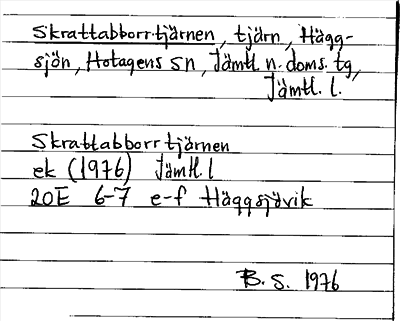 Skrattabborrtjärnen, tjärn, Hägg-
sjön, Hotagens sn, Jämtl. n. doms. tg,
Jämtl. l.
Skrattabborrtjärnen
ek (1976) Jämtl. l
20E 6-7 e-f Häggsjövik
B. S. 1976